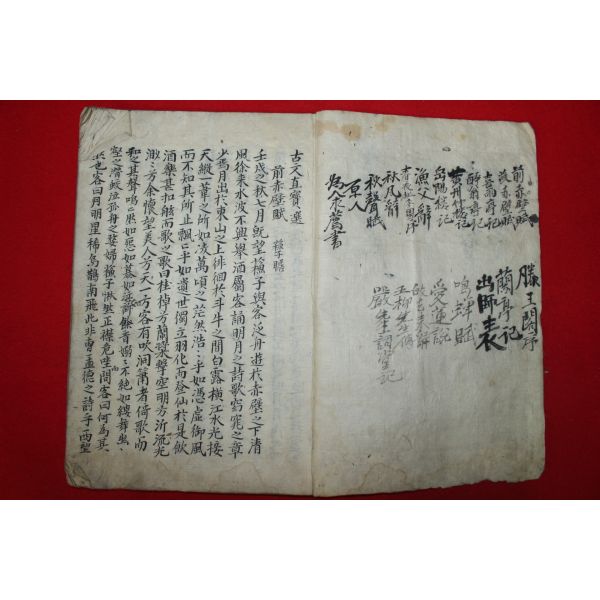 前赤壁賦
後赤壁賦
喜雨亭記
醉翁亭記
黃州竹樓記
岳陽樓記
漁父辭
春夜桃李園序
秋風辭
秋聲賦
原人
爲人求薦書
滕王閣序
蘭亭記
出師表
鳴蟬賦
愛蓮說
歸去來辭
五柳先生傳
嚴先生祠堂記
古文眞寳選
前赤壁賦 蘇子瞻
壬戌之秋七月旣望蘇子與客泛舟遊於赤壁之下清
風徐來水波不興擧酒屬客誦明月之詩歌窈窕之章
少焉月出於東山之上徘徊於斗牛之間白露橫江水光接
天縱一葦之所如凌萬頃之茫然浩〻乎如憑虛御風
而不知其所止飄〻乎如遺世獨立羽化而登仙於是飮
酒樂甚扣舷而歌之歌曰桂棹兮蘭槳擊空明兮泝流光
渺〻兮余懷望美人兮天一方客有吹洞簫者倚歌而
和之其聲嗚〻然如怨如慕如泣如訴餘音嫋〻不絶如縷舞幽
壑之潛蛟泣孤舟之嫠婦蘇子愀然正襟危坐而問客曰何爲其
然也客曰月明星稀烏鵲南飛此非曹孟德之詩乎西望